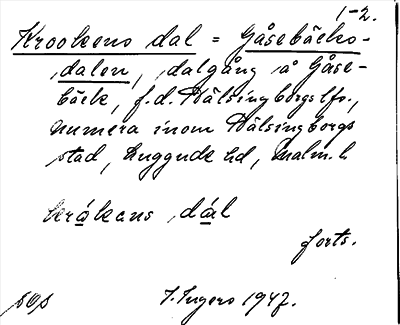 1-2.
Krookens dal = Gåsebäcks-
dalen, dalgång å Gåse-
bäck, f.d. Hälsingborgs lfs.,
numera inom Hälsingborgs
stad, Luggude hd, Malm. l.
kråkans dål
forts.
I. Ingers 1947.